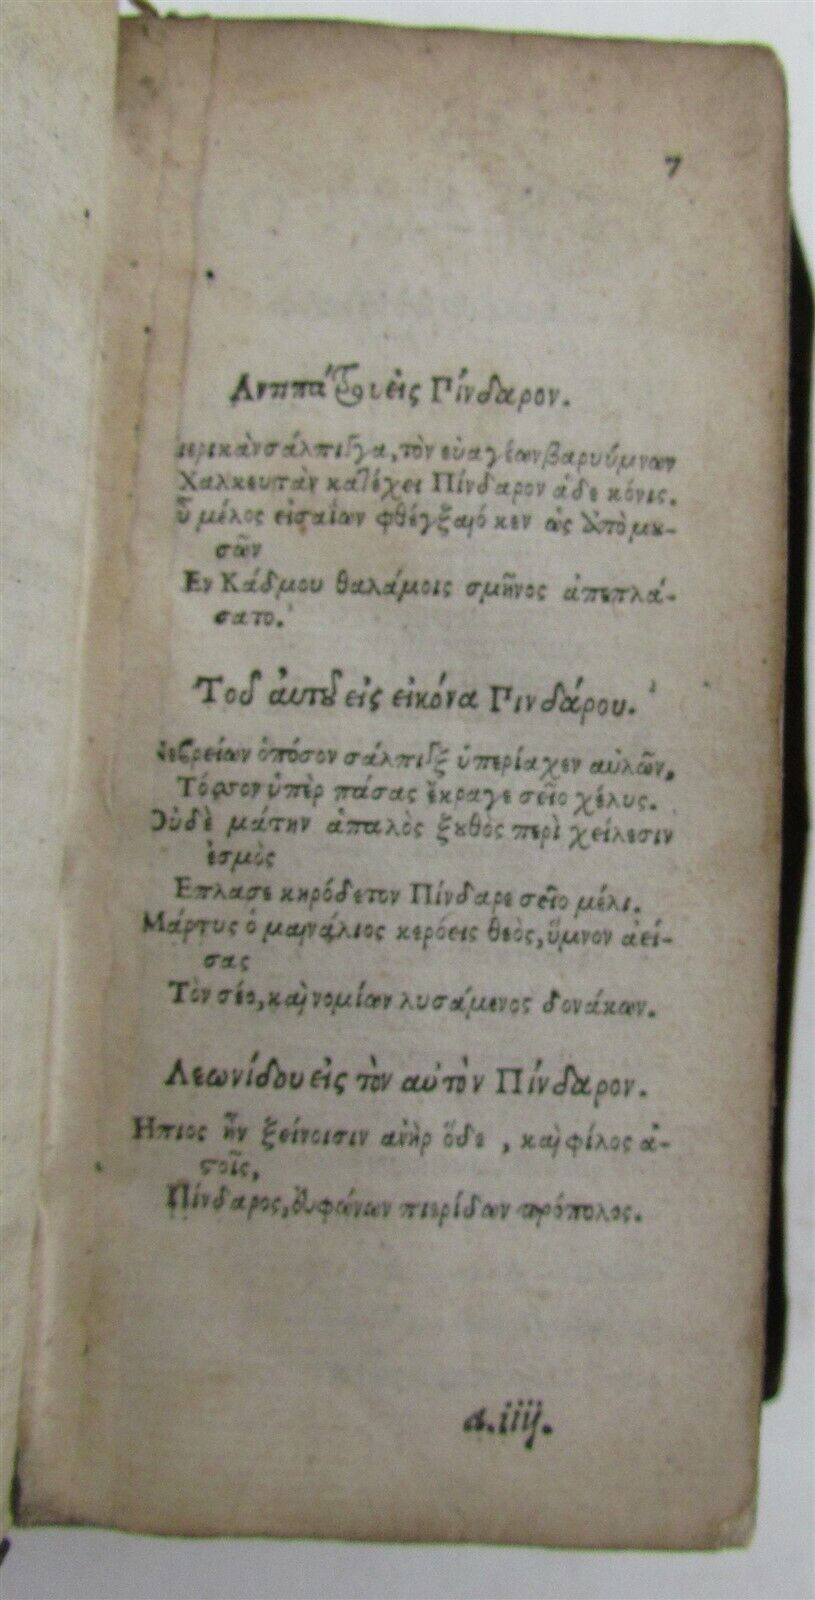 7
Αντιπάτρου εἰς Πίνδαρον.
πιερικὰν σάλπιγγα, τὸν εὐαγέων βαρυύμνων
Χαλκευτὰν κατέχει Πίνδαρον ἅδε κόνις.
οὗ μέλος εἰσαΐων φθέγξαιό κεν ὡς ἀπὸ μου-
σῶν
Εν Κάδμου θαλάμοις σμῆνος ἀπεπλά-
σατο.
Τοῦ ἀυτοῦ εἰς εἰκόνα Πινδάρου.
νεβρείων ὁπόσον σάλπιγξ ὑπερίαχεν αὐλῶν,
Τόσσον ὑπὲρ πάσας ἔκραγε σεῖο χέλυς.
Οὐδὲ μάτην ἁπαλὸς ξουθὸς περὶ χείλεσιν
ἑσμὸς
Επλασε κηρόδετον Πίνδαρε σεῖο μέλι.
Μάρτυς ὁ μαινάλιος κερόεις θεὸς, ὕμνον ἀεί-
σας
Τὸν σέο, καὶ νομίων λυσάμενος δονάκων.
Λεωνίδου εἰς τὸν αὐτὸν Πίνδαρον.
Ηπιος ἦν ξείνοισιν ἀνὴρ ὅδε, καὶ φίλος ἀ-
στοῖς,
Πίνδαρος, εὐφώνων πιερίδων πρόπολος.
a.iiij.